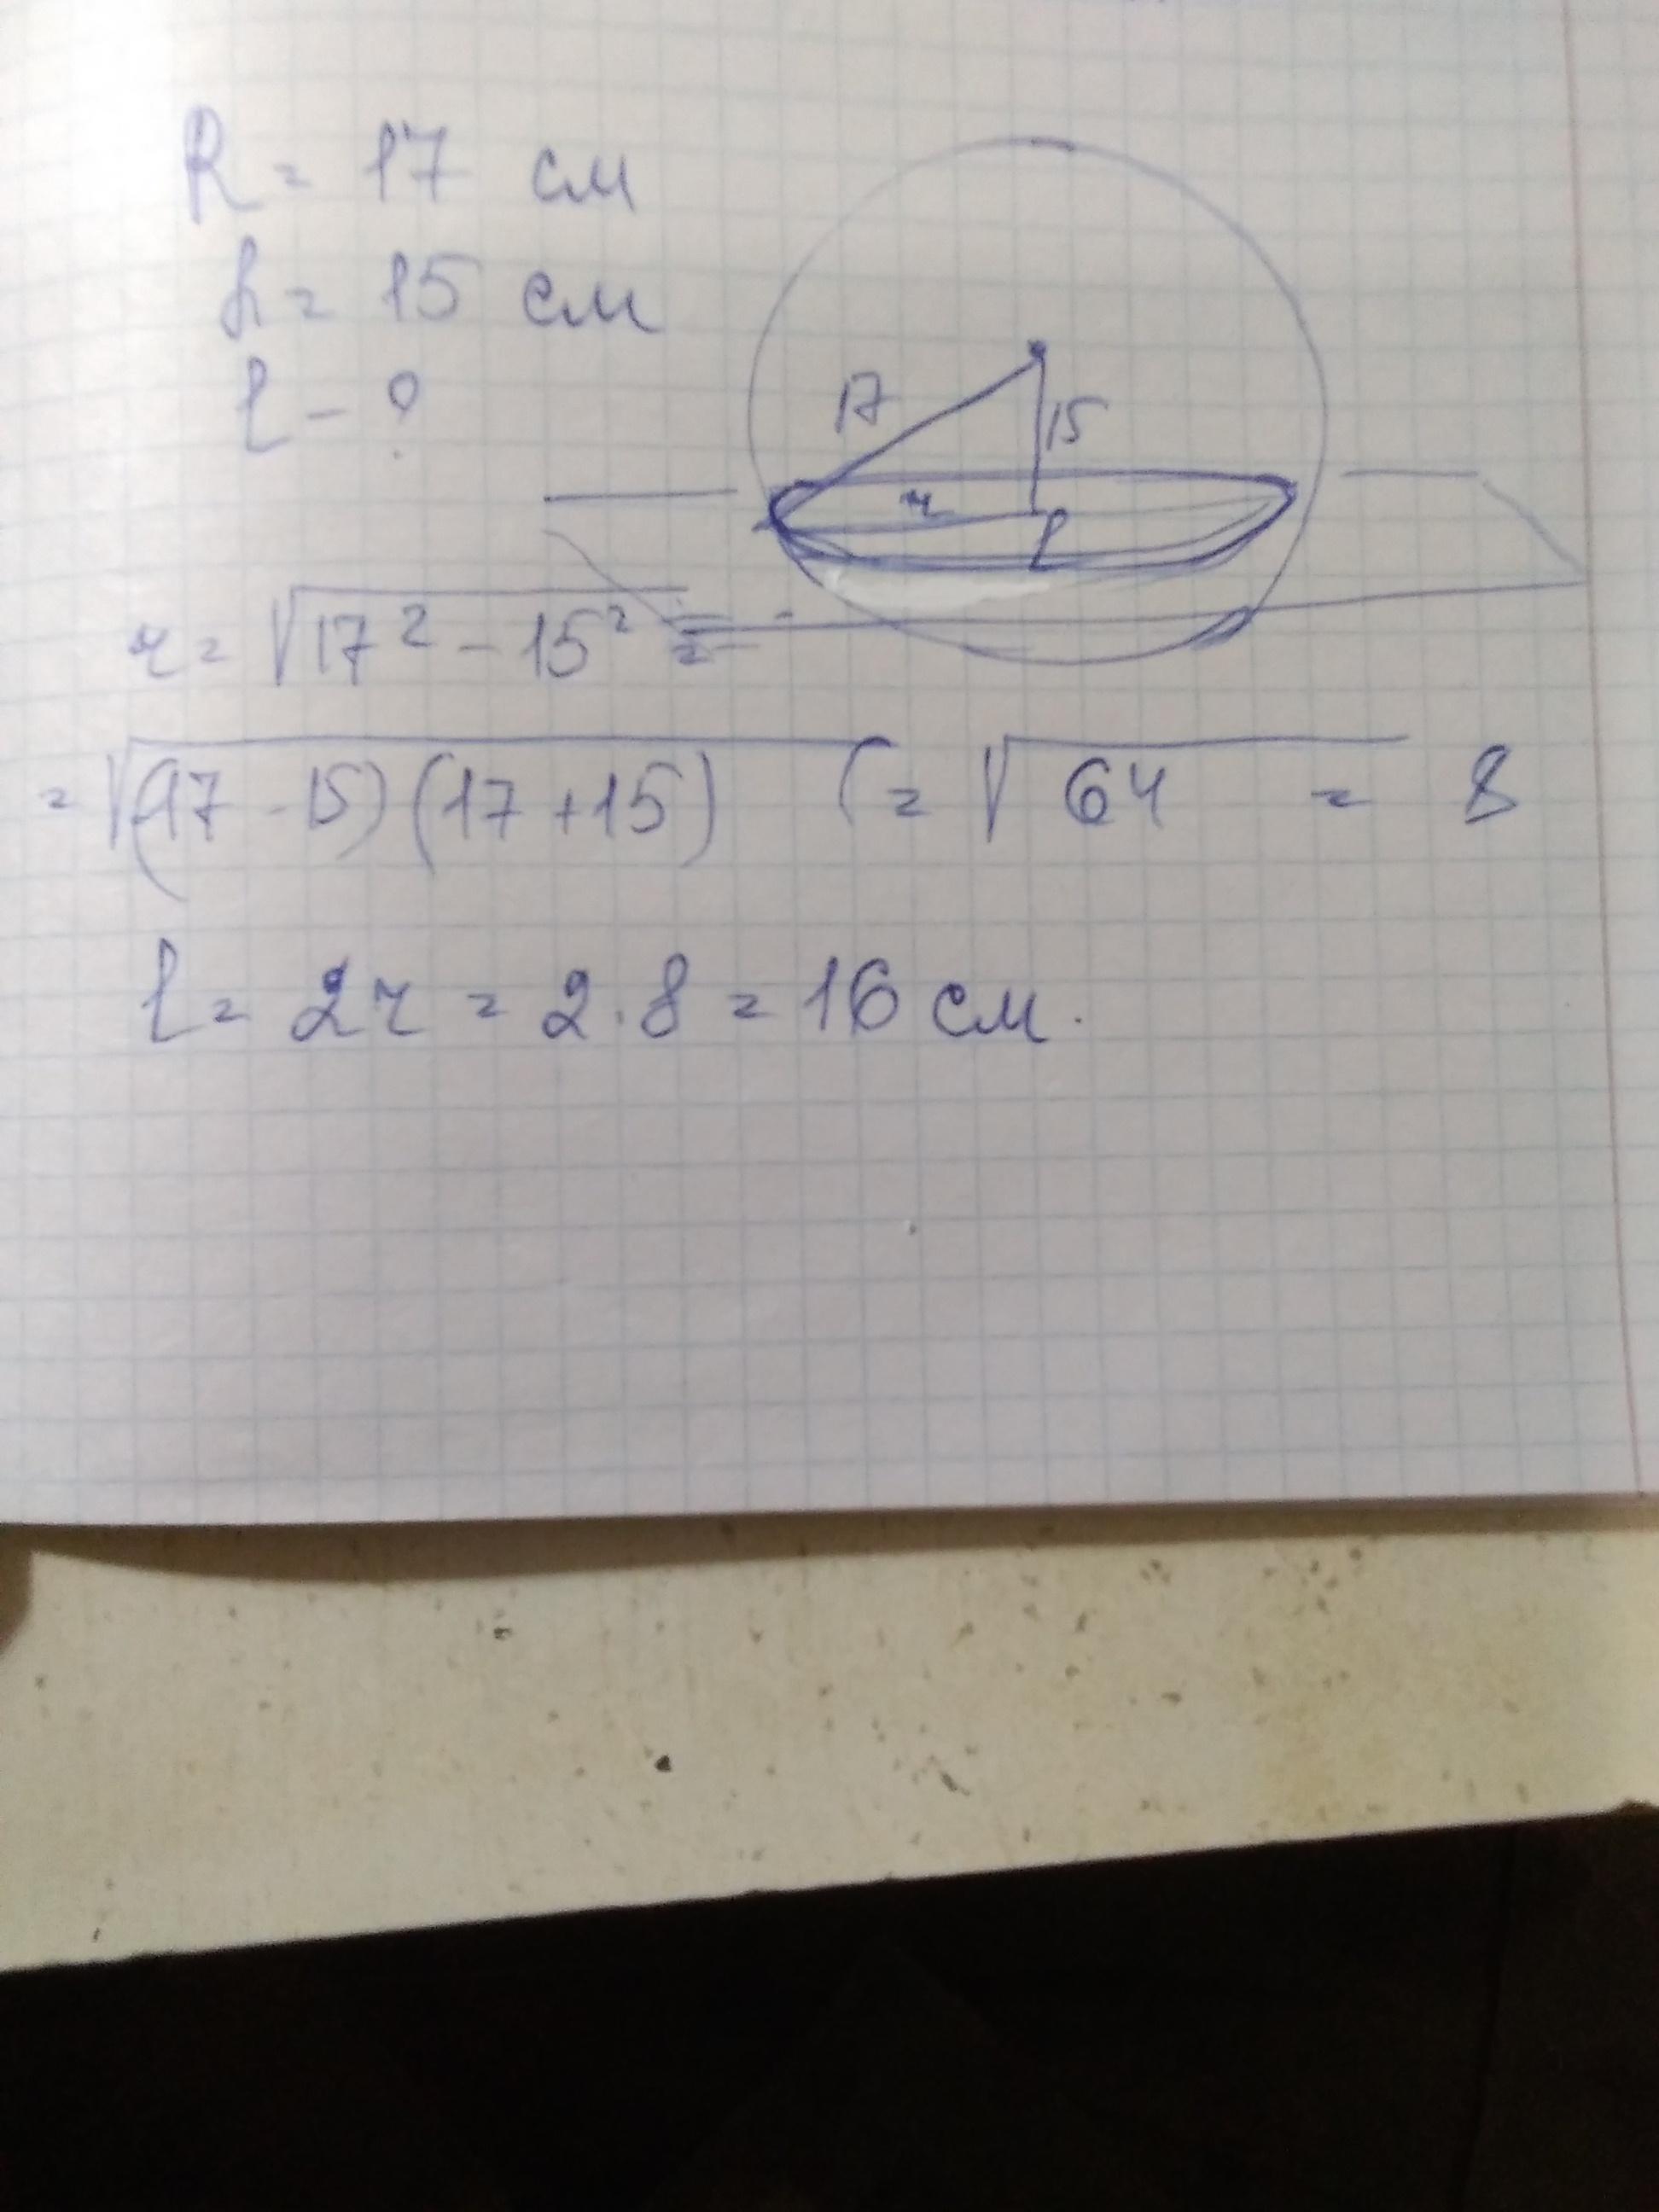 R = 17 см
h = 15 см
l - ?
17
15
r
l
r = √17² - 15² =
= √(17 - 15)(17 + 15) = √64 = 8
l = 2r = 2 · 8 = 16 см.